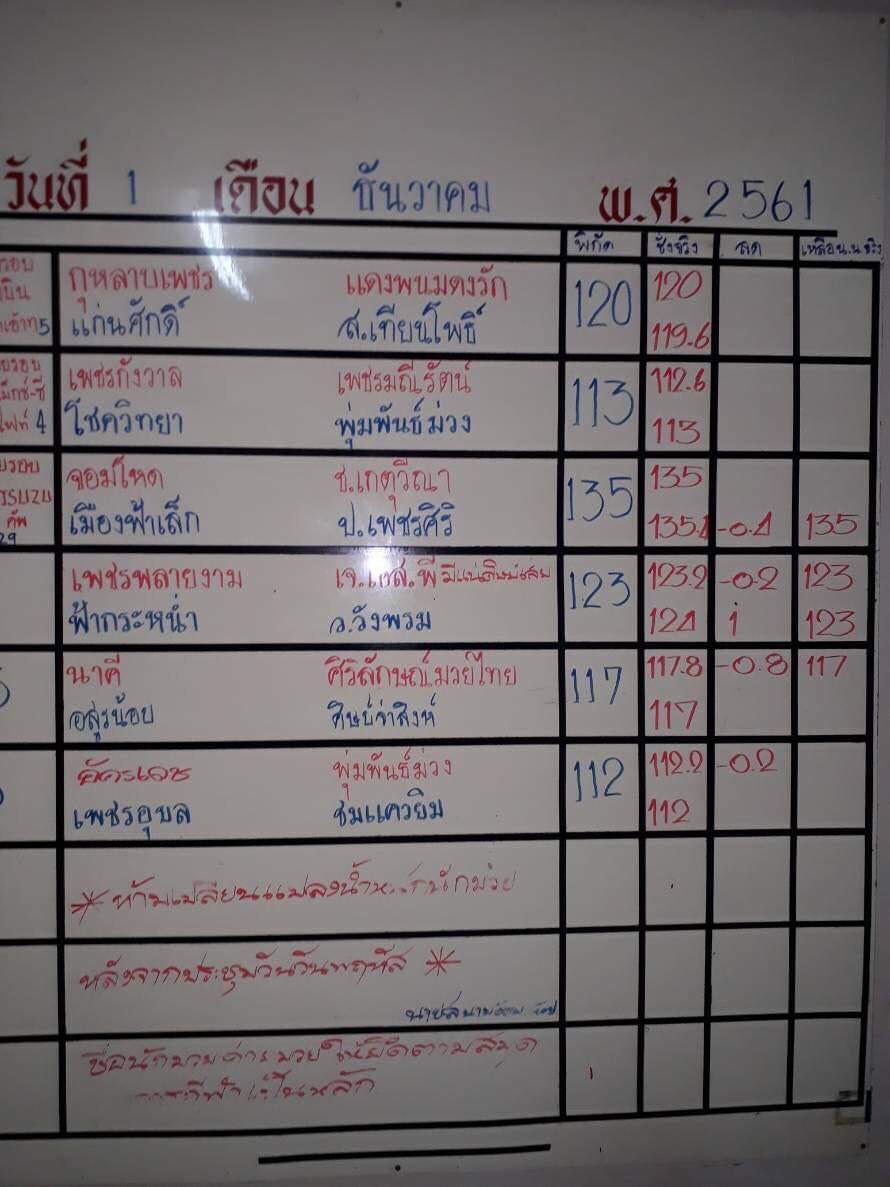 วันที่ 1 เดือน ธันวาคม พ.ศ. 2561
พิกัด ชั่งจริง ลด เหลือน.น.จริง
รอบ กุหลาบเพชร แดงพนมดงรัก 120 120
แก่นศักดิ์ ส.เทียนโพธิ์ 119.6
รอบ เพชรกังวาล เพชรมณีรัตน์ 113 112.6
ไฟท์ 4 โชควิทยา พุ่มพันธ์ม่วง 113
รอบ จอมโหด ช.เกตุวีณา 135 135
คัพ เมืองฟ้าเล็ก ป.เพชรศิริ 135.1 -0.1 135
เพชรพลายงาม เจ.เอส.พี 123 123.2 -0.2 123
ฟ้ากระหน่ำ ว.วังพรม 124 1 123
นาคี ศิริลักษณ์มวยไทย 117 117.8 -0.8 117
อสูรน้อย ศิษย์จ่าสิงห์ 117
อัครเดช พุ่มพันธ์ม่วง 112 112.2 -0.2
เพชรอุบล ชมแควยิม 112
* ห้ามเปลี่ยนแปลงน้ำหนักนักมวย
หลังจากประชุมวันวันพฤหัส *
นายสนาม
ชื่อนักมวยค่ายมวยให้ยึดตามสมุด
เป็นหลัก